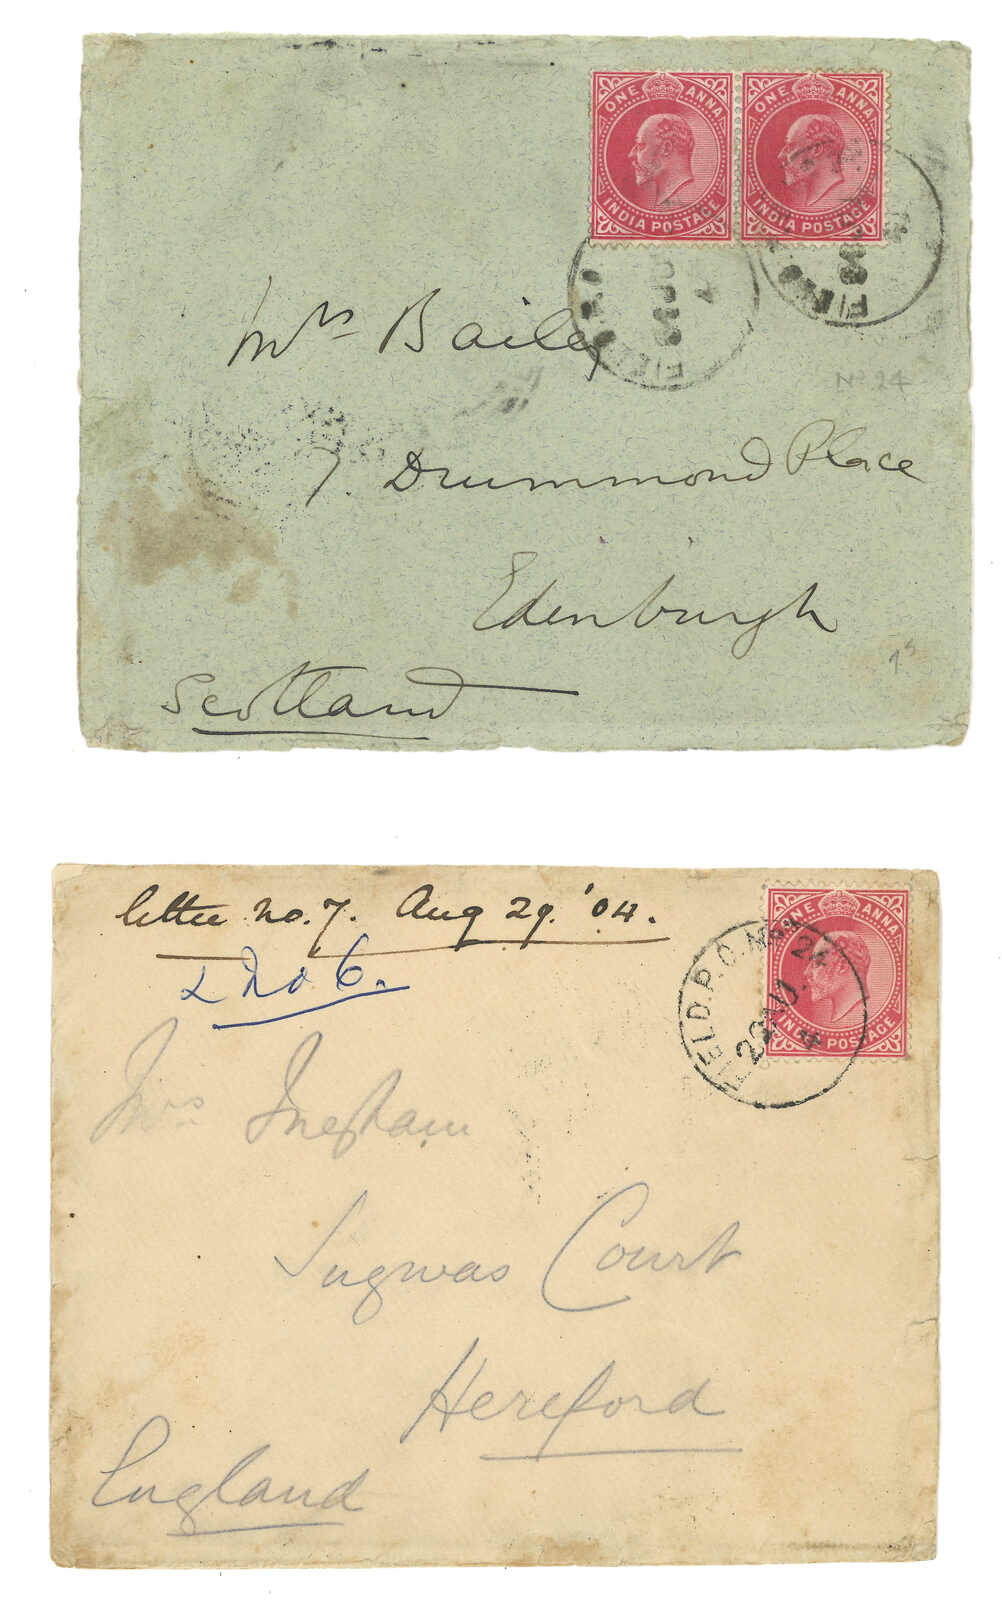 ONE ANNA
INDIA POSTAGE
ONE ANNA
INDIA POSTAGE
Mrs Bailey
No 24
7. Drummond Place
Edinburgh
Scotland
letter no. 7. Aug 29. '04.
& No 6.
ONE ANNA
INDIA POSTAGE
FIELD.P.O.No. 24
29 AU.
4
Mrs
Sugwas Court
Hereford
England